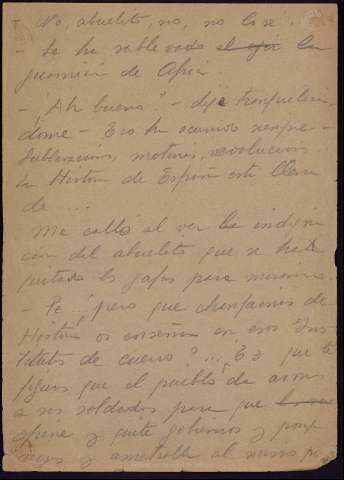 - No, abuelito, no, no lo sé.
- Se ha sublevado el ejér la
guarnición de Africa.
- ¿Ah bueno? - dije tranquilizan
dome - Eso ha ocurrido siempre -
Sublevaciones, motines, revoluciones.
La Historia de España está llena
de ....
Me calló al ver la indigna
ción del abuelito que se había
quitado las gafas para mirarme.
- Pe..! pero que de
Historia os enseñan en esos Ins
titutos de cuervo? ... ¿Es que te
figuras que el pueblo da armas
a sus soldados para que
y quite gobiernos y pon
y ametralle al mismo